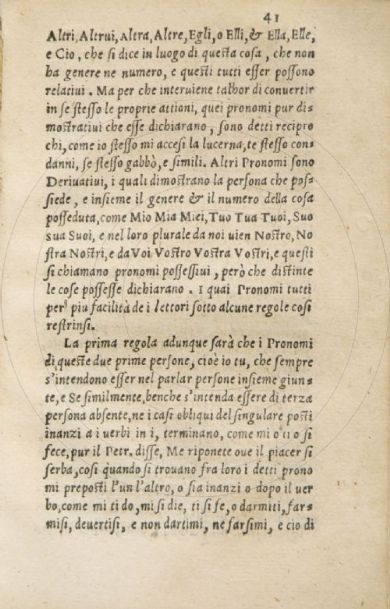 41
Altri, Altrui, Altra, Altre, Egli, o Elli, & Ella, Elle,
e Cio, che si dice in luogo di questa cosa, che non
ha genere ne numero, e questi tutti esser possono
relatiui. Ma per che interuiene talhor di conuertir
in se stesso le proprie attioni, quei pronomi pur di=
mostratiui che esse dichiarano, sono detti recipro
chi, come io stesso mi accesi la lucerna, te stesso con=
danni, se stesso gabbò, e simili. Altri Pronomi sono
Deriuatiui, i quali dimostrano la persona che pos=
siede, e insieme il genere & il numero della cosa
posseduta, come Mio Mia Miei, Tuo Tua Tuoi, Suo
sua Suoi, e nel loro plurale da noi uien Nostro, No
stra Nostri, e da Voi Vostro Vostra Vostri, e questi
si chiamano pronomi possessiui, però che distinte
le cose possesse dichiarano. I quai Pronomi tutti
per piu facilità de i lettori sotto alcune regole cosi
restrinsi.
La prima regola adunque sarà che i Pronomi
di queste due prime persone, cioè io tu, che sempre
s'intendono esser nel parlar persone insieme giun=
te, e Se similmente, benche s'intenda essere di terza
persona absente, ne i casi obliqui del singulare posti
inanzi a i uerbi in i, terminano, come mi o ti o si
fece, pur il Petr. disse, Me riponete oue il piacer si
serba, cosi quando si trouano fra loro i detti prono
mi preposti l'un l'altro, o sia inanzi o dopo il uer
bo, come mi ti do, mi si die, ti si fe, o darmiti, far=
misi, deuertisi, e non dartimi, ne farsimi, e cio di